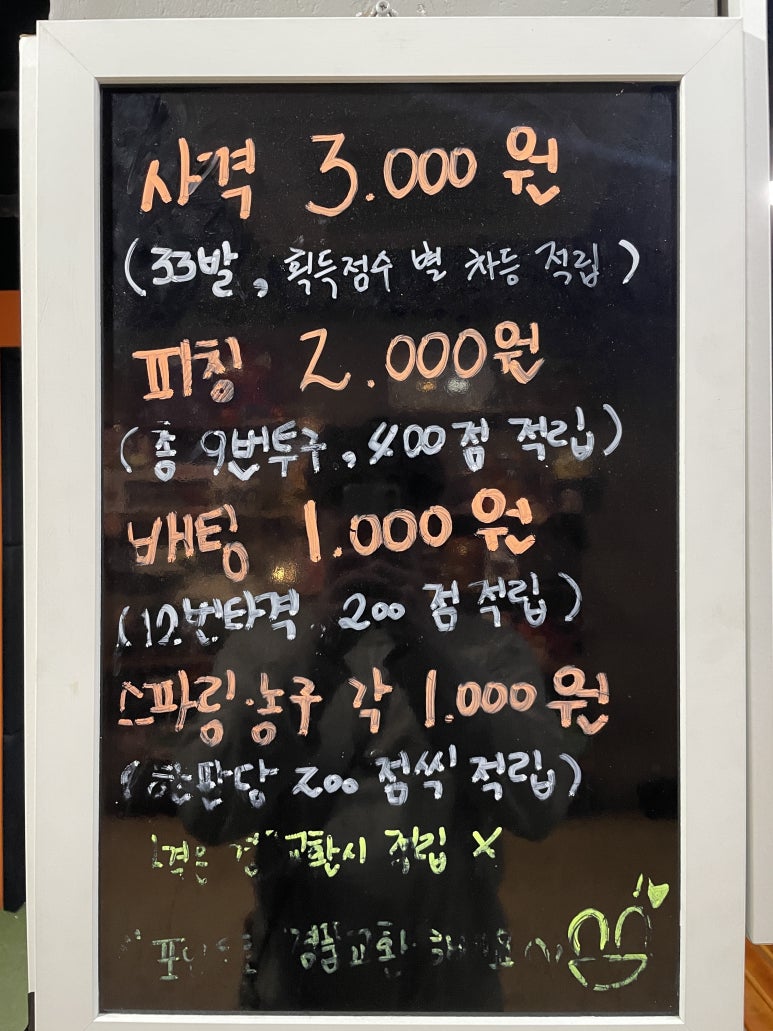 사격 3.000원
(33발, 획득점수 별 차등 적립)
피칭 2.000원
(총 9번투구, 400점 적립)
배팅 1.000원
(12번타격 200점 적립)
스파링·농구 각 1.000원
(한판당 200점씩 적립)
교환시 적립 X
경품교환